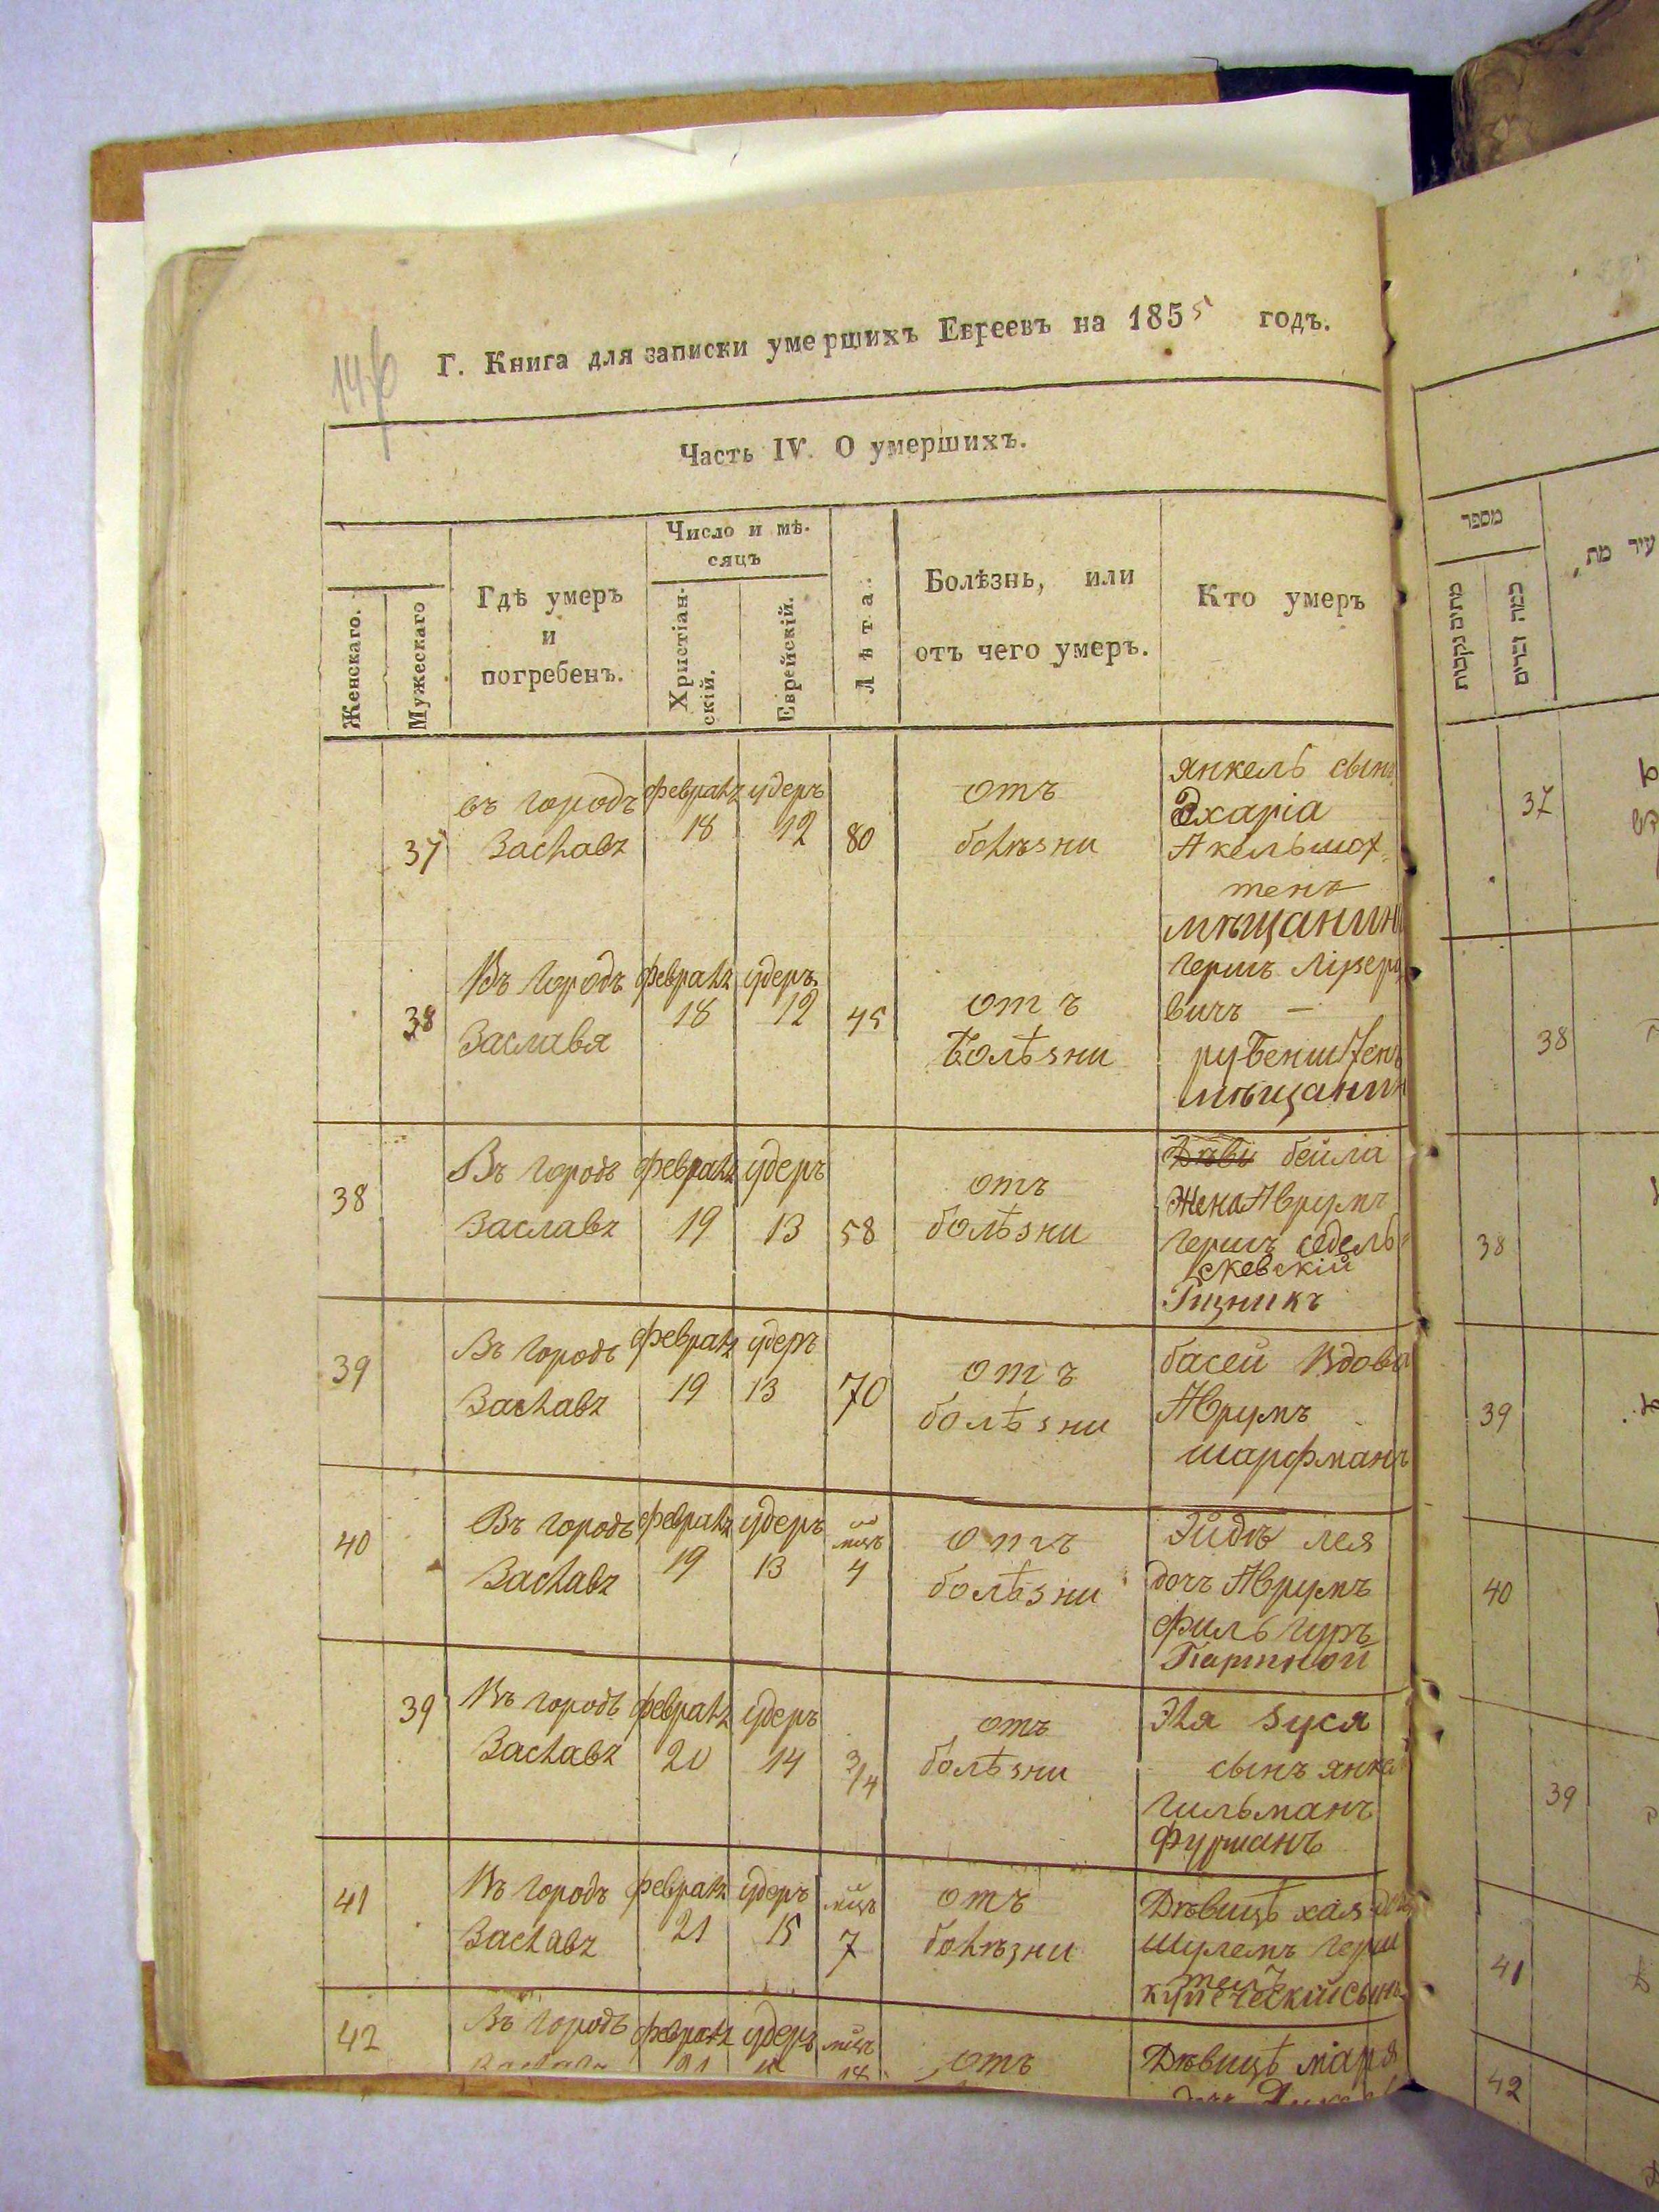 146
Г. Книга для записки умершихъ Евреевъ на 1855 годъ.
Часть IV. О умершихъ.
Женскаго.
Мужескаго
Гдѣ умеръ
и
погребенъ.
Число и мѣ-
сяцъ
Христіан-
скій.
Еврейскій.
Лѣта.
Болѣзнь, или
отъ чего умеръ.
Кто умеръ
37
въ городѣ
Заславѣ
февраля
18
удеръ
12
80
отъ
болѣзни
янкель сынъ
Зхаріа
Акельшоx-
тенъ
мѣщанинъ
38
Въ городѣ
Заславя
февраля
18
удеръ
12
45
отъ
болѣзни
герш
вичъ —
рубенштенъ
мѣщанин
38
Въ городѣ
Заславѣ
февраля
19
удеръ
13
58
отъ
болѣзни
Дѣви бейла
жена Аврумъ
гершъ седель-
скевскій
39
Въ городѣ
Заславѣ
февраля
19
удеръ
13
70
отъ
болѣзни
басей Вдова
Аврумъ
шарфманъ
40
Въ городѣ
Заславѣ
февраля
19
удеръ
13
мцъ
4
отъ
болѣзни
лея
дочъ Аврумъ
Портной
39
Въ городѣ
Заславѣ
февраля
20
удеръ
14
3/4
отъ
болѣзни
Эля зуся
сынъ янкел
гильманъ
фурманъ
41
Въ городѣ
Заславѣ
февраля
21
удеръ
15
мцъ
7
отъ
болѣзни
Дѣвицѣ хая доч
шулемъ герш
купеческій сынъ
42
Въ городѣ
февраля
удеръ
мцъ
отъ
Дѣвицѣ маря
מספר
מתים נקבות
כמה זכרים
עיר מת,
37
38
38
39
40
39
41
42